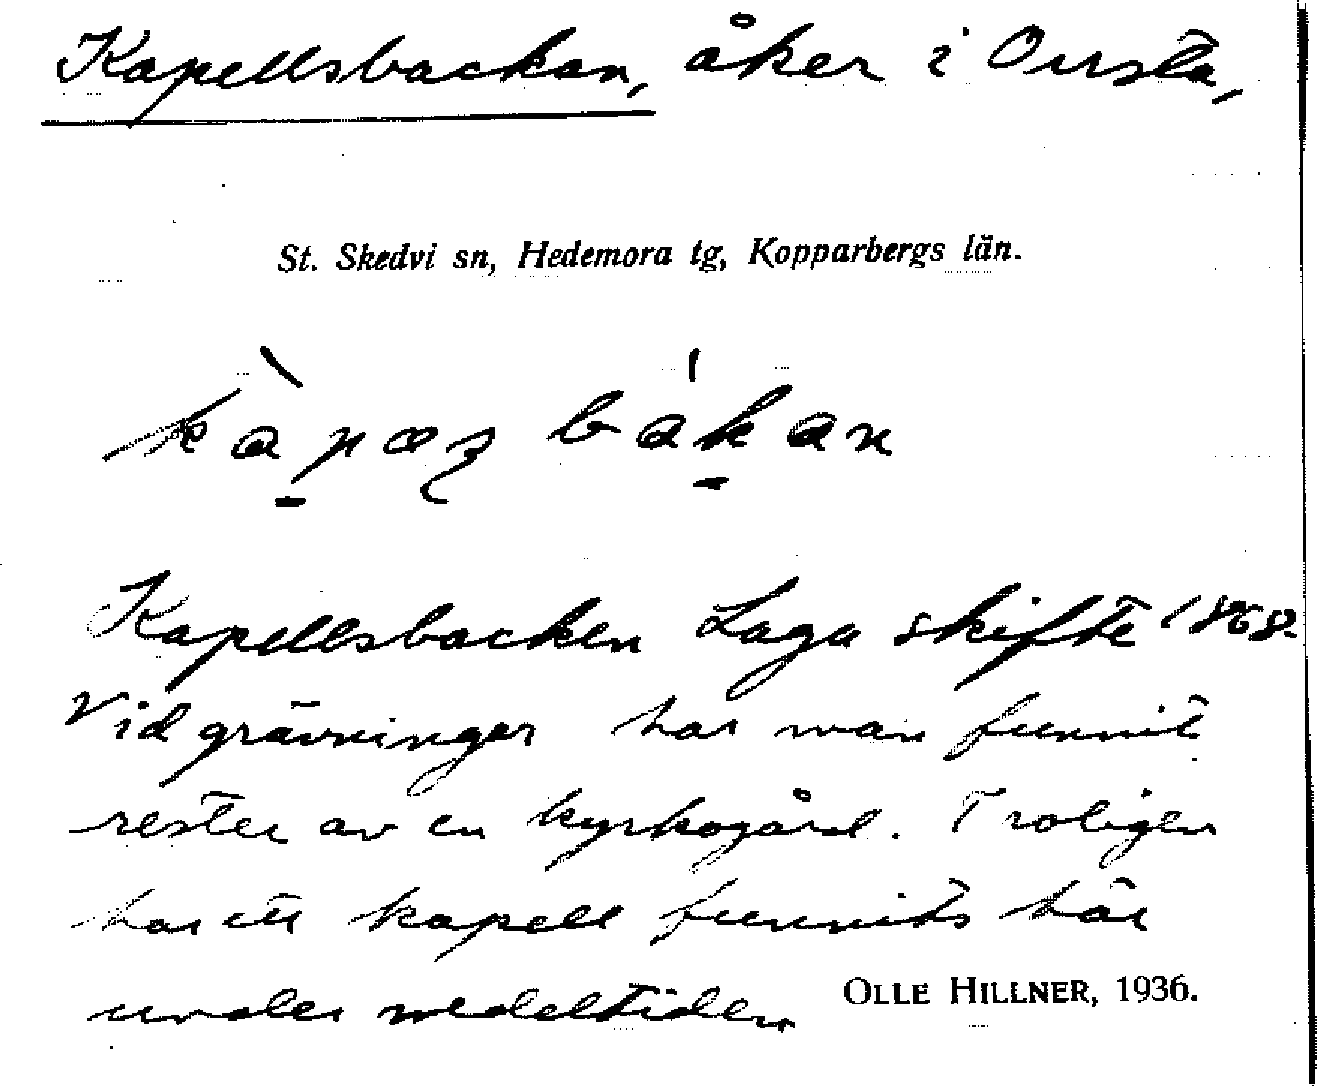 Kapellsbackan, åker i Onsta,
St. Skedvi sn, Hedemora tg, Kopparbergs län.
Kapellsbacken Laga skifte 1868.
Vid grävningar har man funnit
rester av en kyrkogård. Troligen
har ett kapell funnits här
under medeltiden
OLLE HILLNER, 1936.